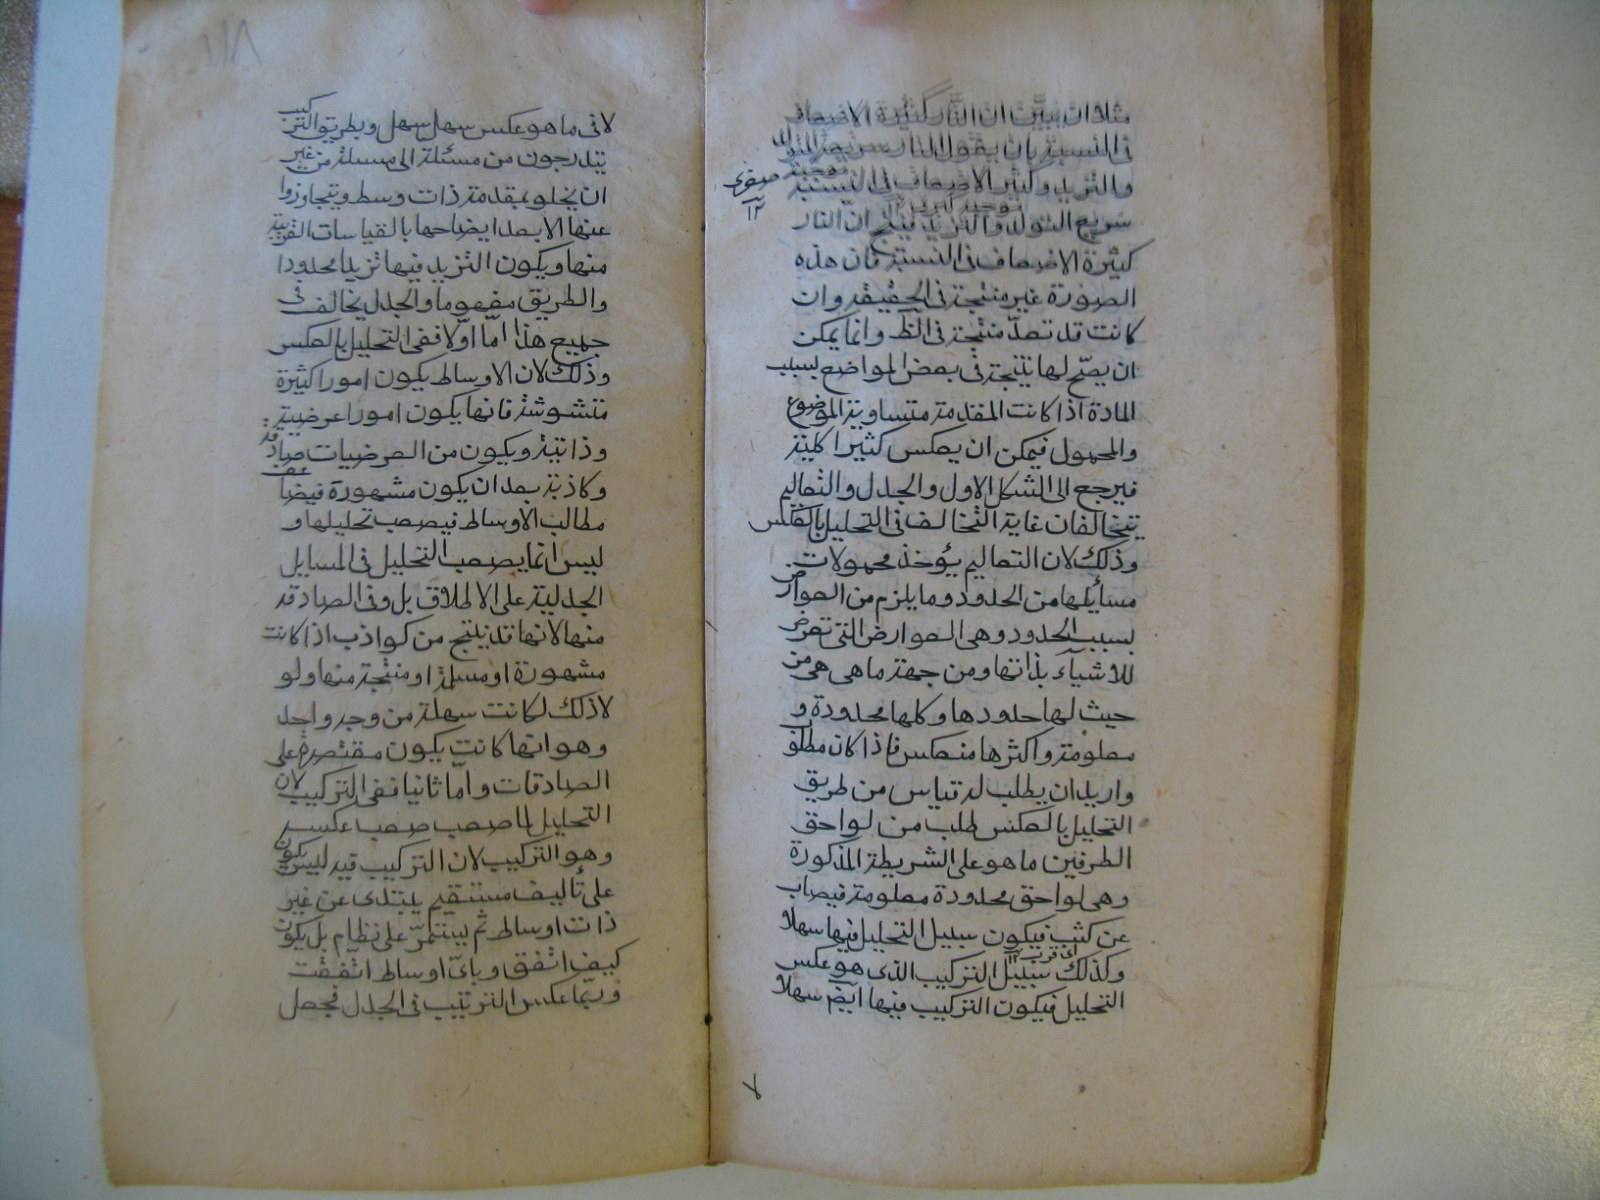 مثلا ان يبين ان النار كثيرة الاضعاف
فى النسبة بان يقول النار سريعة التولد
والتزيد وكثير الاضعاف فى النسبة
موجبة
صغرى
١٢
موجبة كبرى ١٢
سريع التولد والتزيد فينتج ان النار
كثيرة الاضعاف فى النسبة فان هذه
الصورة غير منتجة فى الحقيقة وان
كانت قد تعدّ منتجة فى الظ وانما يمكن
ان يصحّ لها نتيجة فى بعض المواضع بسبب
المادة اذا كانت المقدمة متساوية الموضوع
والمحمول فيمكن ان يعكس كثيرا كلية
فيرجع الى الشكل الاول والجدل والتعاليم
يتخالفان غاية التخالف فى التحليل بالعكس
وذلك لان التعاليم يؤخذ محمولات
مسأيلها من الحدود وما يلزم من العوارض
بسبب الحدود وهى العوارض التى تعرض
للاشيآء بذاتها ومن جهة ما هى هى من
حيث لها حدودها وكلها محدودة و
معلومة واكثرها منعكس فاذا كان مطلوب
واريد ان يطلب له قياس من طريق
التحليل بالعكس طلب من لواحق
الطرفين ما هو على الشريطة المذكورة
وهى لواحق محدودة معلومة فيصاب
عن كثب فيكون سبيل التحليل فيها سهلا
اى قريب ١٢
وكذلك سبيل التركيب الذى هو عكس
التحليل فيكون التركيب فيها ايضم سهلا
لا
١١٨
لانى ما هو عكس سهل سهل وبطريق التركيب
يتدرجون من مسئلة الى مسئلة من غير
ان يخلو بمقدمة ذات وسط ويتجاوزوا
عنها الا بعد ايضاحها بالقياسات القريبة
منها ويكون التزيد فيها تزيدا محدودا
والطريق مفهوما والجدل يخالف فى
جميع هذا امّا اوّلا ففى التحليل بالعكس
وذلك لان الاوساط يكون امورا كثيرة
متشوشة فانها يكون امورا عرضية
وذاتية ويكون من العرضيات صادقة
وكاذبة بعد ان يكون مشهورة فيضاعف
مطالب الاوساط فيصعب تحليلها و
ليس انما يصعب التحليل فى المسايل
الجدلية على الاطلاق بل وفى الصادقة
منها لانها قد ينتج من كواذب اذا كانت
مشهورة او مسلمة او منتجة منها ولو
لا ذلك لكانت سهلة من وجه واحد
وهو انها كانت يكون مقتصرة على
الصادقات وامّا ثانيا ففى التركيب لان
التحليل لما صعب صعب عكسه
وهو التركيب لان التركيب فيه ليس يكون
على تأليف مستقيم يبتدى عن غير
ذات اوساط ثم يستمرّ على نظام بل يكون
كيف اتفق وباىّ اوساط اتفقت
وربّما عكس الترتيب فى الجدل فجعل